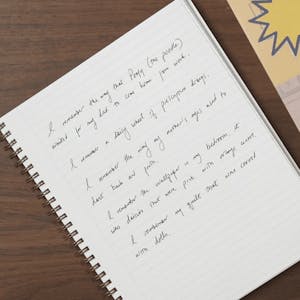 I remember the way that Poofy (the poodle)
waited for my dad to come home from work.
I remember a daily wheel of
I remember the way my mother's eyes used to
dart back and forth.
I remember the wallpaper in my bedroom. It
was daisies that were pink with orange
I remember my quilt that was covered
with dolls.